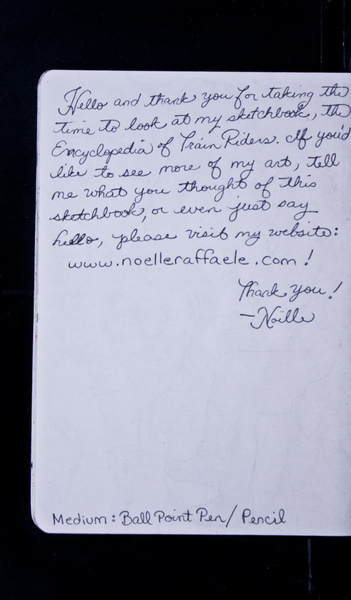 Hello and thank you for taking the
time to look at my sketchbook, the
Encyclopedia of Train Riders. If you'd
like to see more of my art, tell
me what you thought of this
sketchbook, or even just say
hello, please visit my website:
www.noelleraffaele.com!
Thank you!
-Noelle
Medium: Ball Point Pen/Pencil